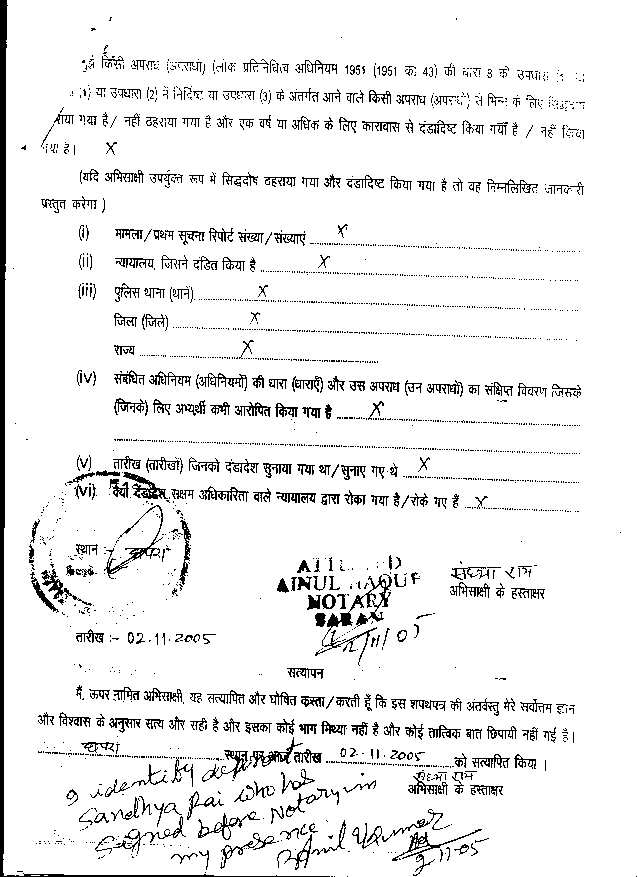 किसी अपराध (अपराधों) (लोक प्रतिनिधित्व अधिनियम 1951 (1951 का 43) की धारा 8 की उपधारा
(1) या उपधारा (2) में निर्दिष्ट या उपधारा (3) के अंतर्गत आने वाले किसी अपराध (अपराधों) से भिन्न के लिए सिद्धदोष
गया गया है / नहीं ठहराया गया है और एक वर्ष या अधिक के लिए कारावास से दंडादिष्ट किया गया है / नहीं किया
गया है। X
(यदि अभिसाक्षी उपर्युक्त रूप में सिद्धदोष ठहराया गया और दंडादिष्ट किया गया है तो वह निम्नलिखित जानकारी
प्रस्तुत करेगा)
(i) मामला/प्रथम सूचना रिपोर्ट संख्या/संख्याएं X
(ii) न्यायालय, जिसने दंडित किया है X
(iii) पुलिस थाना (थाने) X
जिला (जिले) X
राज्य X
(iv) संबंधित अधिनियम (अधिनियमों) की धारा (धाराएँ) और उस अपराध (उन अपराधों) का संक्षिप्त विवरण जिसके
(जिनके) लिए अभ्यर्थी कभी आरोपित किया गया है X
(v) तारीख (तारीखों) जिनको दंडादेश सुनाया गया था/सुनाए गए थे X
(vi) क्या दंडादेश सक्षम अधिकारिता वाले न्यायालय द्वारा रोका गया है/रोके गए हैं X
स्थान :- छपरा
AINUL HAQUE
NOTARY
SARAN
2/11/05
संध्या राय
अभिसाक्षी के हस्ताक्षर
तारीख :- 02.11.2005
सत्यापन
मैं, ऊपर नामित अभिसाक्षी, यह सत्यापित और घोषित करता/करती हूँ कि इस शपथपत्र की अंतर्वस्तु मेरे सर्वोत्तम ज्ञान
और विश्वास के अनुसार सत्य और सही है और इसका कोई भाग मिथ्या नहीं है और कोई तात्विक बात छिपायी नहीं गई है।
छपरा स्थान पर आज तारीख 02.11.2005 को सत्यापित किया।
संध्या राय
अभिसाक्षी के हस्ताक्षर
I identify deponent
Sandhya Rai who has
signed before Notary in
my presence.
Anil Kumar
Adv
2-11-05